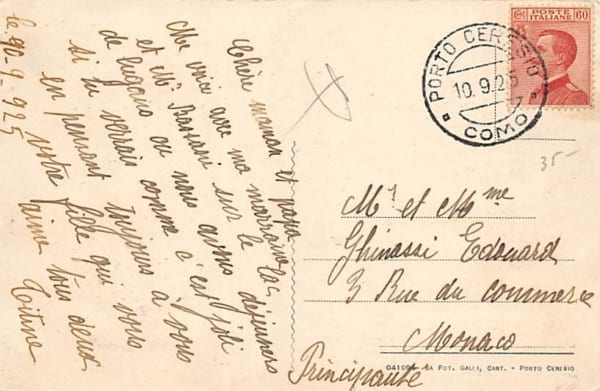 le 10-9-925
Chère maman et papa
Me voici avec ma marraine
et Mr Bassani sur le lac
de Lugano où nous avons déjeuners
si tu verrais comme c'est joli
en pensant toujours à vous
votre fille qui vous
aime tous deux
Titine
POSTE ITALIANE
60
PORTO CERESIO
10.9.25
COMO
35-
Mr et Mme
Ghinassi Edouard
3 Rue du commerce
Monaco
Principauté
FOT. GALLI, CART. - PORTO CERESIO